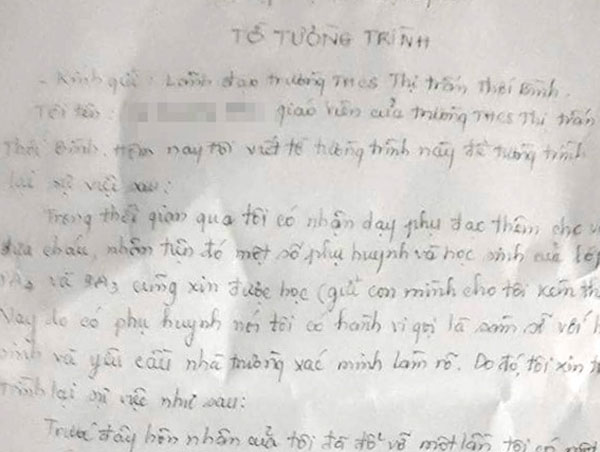 TỜ TƯỜNG TRÌNH
- Kính gửi: Lãnh đạo trường THCS Thị trấn Thái Bình.
Tôi tên: giáo viên của trường THCS Thị trấn
Thái Bình. Hôm nay tôi viết tờ tường trình này để tường trình
lại sự việc sau:
Trong thời gian qua tôi có nhận dạy phụ đạo thêm cho
đứa cháu, nhân tiện đó một số phụ huynh và học sinh của lớp
và cũng xin được học (gửi con mình cho tôi kèm
Nay do có phụ huynh nói tôi có hành vi gọi là sàm sỡ với
sinh và yêu cầu nhà trường xác minh làm rõ. Do đó, tôi xin
trình lại sự việc như sau:
Trước đây hôn nhân của tôi đã đổ vỡ một lần tôi có